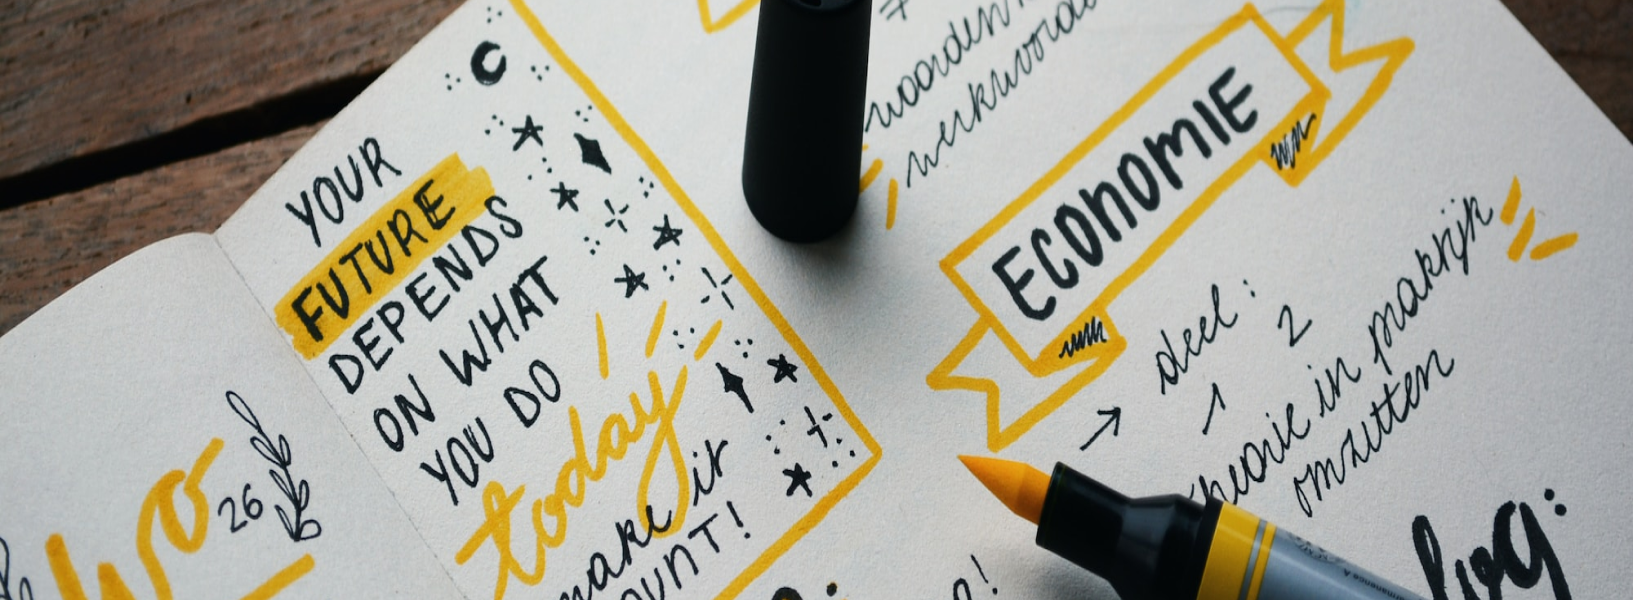 wo
26
YOUR
FUTURE
DEPENDS
ON WHAT
YOU DO
today
make it
woorden
werkwoorde
ECONOMIE
→ deel:
1 2
theorie in praktijk
omzetten